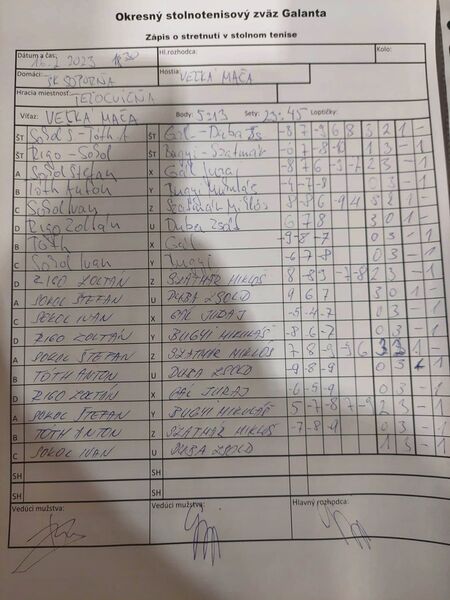 Okresný stolnotenisový zväz Galanta
Zápis o stretnutí v stolnom tenise
Dátum a čas: 2023 Hl.rozhodca: Kolo:
Domáci: Hostia: VEĽKÁ MAČA
Hracia miestnosť: TELOCVIČŇA
Víťaz: VEĽKÁ MAČA Body: 5:13 Sety: 23:45 Loptičky:
ŠT Sokol Š - Tóth A ŠT Gál - Duba -8 7 -9 6 8 3 2 1 -
ŠT Rigo - Sokol ŠT Bugyi - Szatmár 0 3 - 1
A Sokol Štefan X Gál Juraj 8 7 6 2 3 - 1
B Tóth Anton Y Bugyi Mikuláš -4 -7 -8 0 3 - 1
C Sokol Ivan Z Szatmár Mikloš -8 -8 6 -9 4
D Rigo Zoltán U Duba Zsolt 6 7 8 3 0 1 -
B Tóth X Gál -9 -8 -7 0 3 - 1
C Sokol Ivan Y Bugyi -6 -7 -8 0 3 - 1
D RIGO ZOLTÁN Z SZATMÁR MIKLÓS 2 3 - 1
A SOKOL ŠTEFAN U DUBA ZSOLD 9 6 7 3 0 1 -
C SOKOL IVAN X GÁL JURAJ -5 -4 -7 0 3 - 1
D RIGO ZOLTÁN Y BUGYI MIKULÁŠ -8 -6 -2 0 3 - 1
A SOKOL ŠTEFAN Z SZATMÁR MIKLÓS 7 8 -9 -9 6 3 1 -
B TÓTH ANTON U DUBA ZSOLD -9 -8 -9 0 3 1
D RIGO ZOLTÁN X GÁL JURAJ -6 -5 -9 0 3 - 1
A SOKOL ŠTEFAN Y BUGYI MIKULÁŠ 5 -7 -8 7 -9 2 3 - 1
B TÓTH ANTON Z SZATMÁR MIKLÓS -7 -8 -9 0 3 - 1
C SOKOL IVAN U DUBA ZSOLD 1 3 - 1
SH SH
SH SH
Vedúci mužstva: Vedúci mužstva: Hlavný rozhodca: